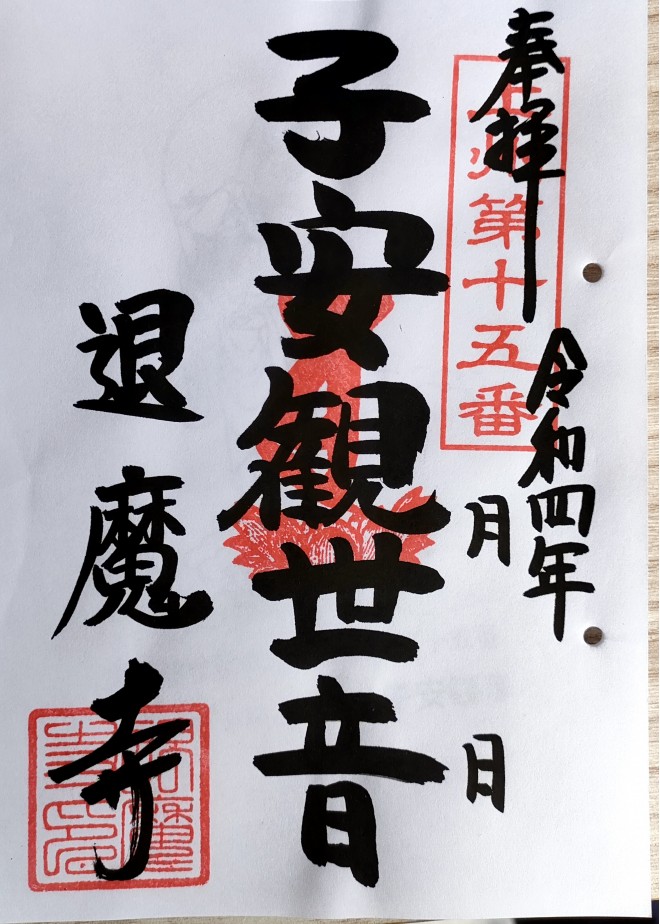 奉拝
第十五番
令和四年
月 日
子安観世音
退魔寺